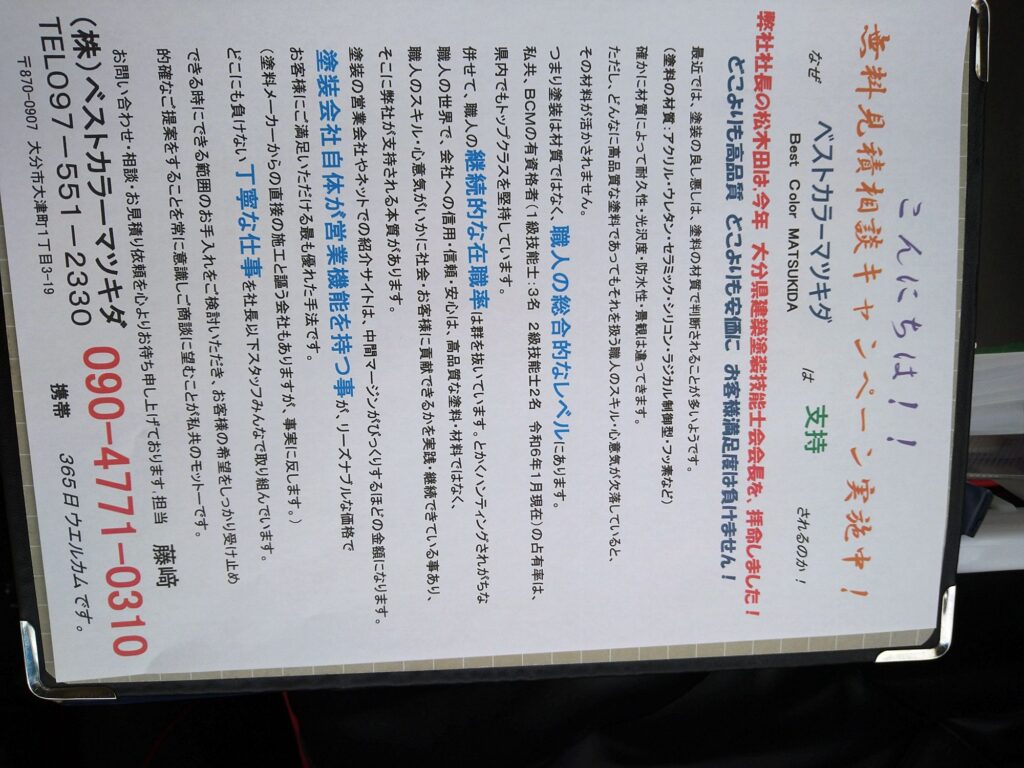 こんにちは！！
無料見積相談キャンペーン実施中！
なぜ ベストカラーマツキダ は 支持 されるのか！
Best Color MATSUKIDA
弊社社長の松木田は、今年 大分県建築塗装技能士会会長を、拝命しました！
どこよりも高品質 どこよりも安価に お客様満足度は負けません！
最近では、塗装の良し悪しは、塗料の材質で判断されることが多いようです。
（塗料の材質：アクリル・ウレタン・セラミック・シリコン・ラジカル制御型・フッ素など）
確かに材質によって耐久性・光沢度・防水性・景観は違ってきます。
ただし、どんなに高品質な塗料であってもそれを扱う職人のスキル・心意気が欠落していると、
その材料が活かされません。
つまり塗装は材質ではなく、職人の総合的なレベルにあります。
私共、BCMの有資格者（1級技能士：3名 2級技能士2名 令和6年1月現在）の占有率は、
県内でもトップクラスを堅持しています。
併せて、職人の継続的な在職率は群を抜いています。とかくハンティングされがちな
職人の世界で、会社への信用・信頼・安心は、高品質な塗料・材料ではなく、
職人のスキル・心意気がいかに社会・お客様に貢献できるかを実践・継続できている事あり、
そこに弊社が支持される本質があります。
塗装の営業会社やネットでの紹介サイトは、中間マージンがびっくりするほどの金額になります。
塗装会社自体が営業機能を持つ事が、リーズナブルな価格で
お客様にご満足いただける最も優れた手法です。
（塗料メーカーからの直接の施工と謳う会社もありますが、事実に反します。）
どこにも負けない 丁寧な仕事を社長以下スタッフみんなで取り組んでいます。
できる時にできる範囲のお手入れをご検討いただき、お客様の希望をしっかり受け止め
的確なご提案をすることを常に意識しご商談に望むことが私共のモットーです。
お問い合わせ・相談・お見積り依頼を心よりお待ち申し上げております 担当 藤﨑
（株）ベストカラーマツキダ 090-4771-0310
TEL097-551-2330 携帯 365日ウエルカムです。
〒870-0907 大分市大津町1丁目3-19